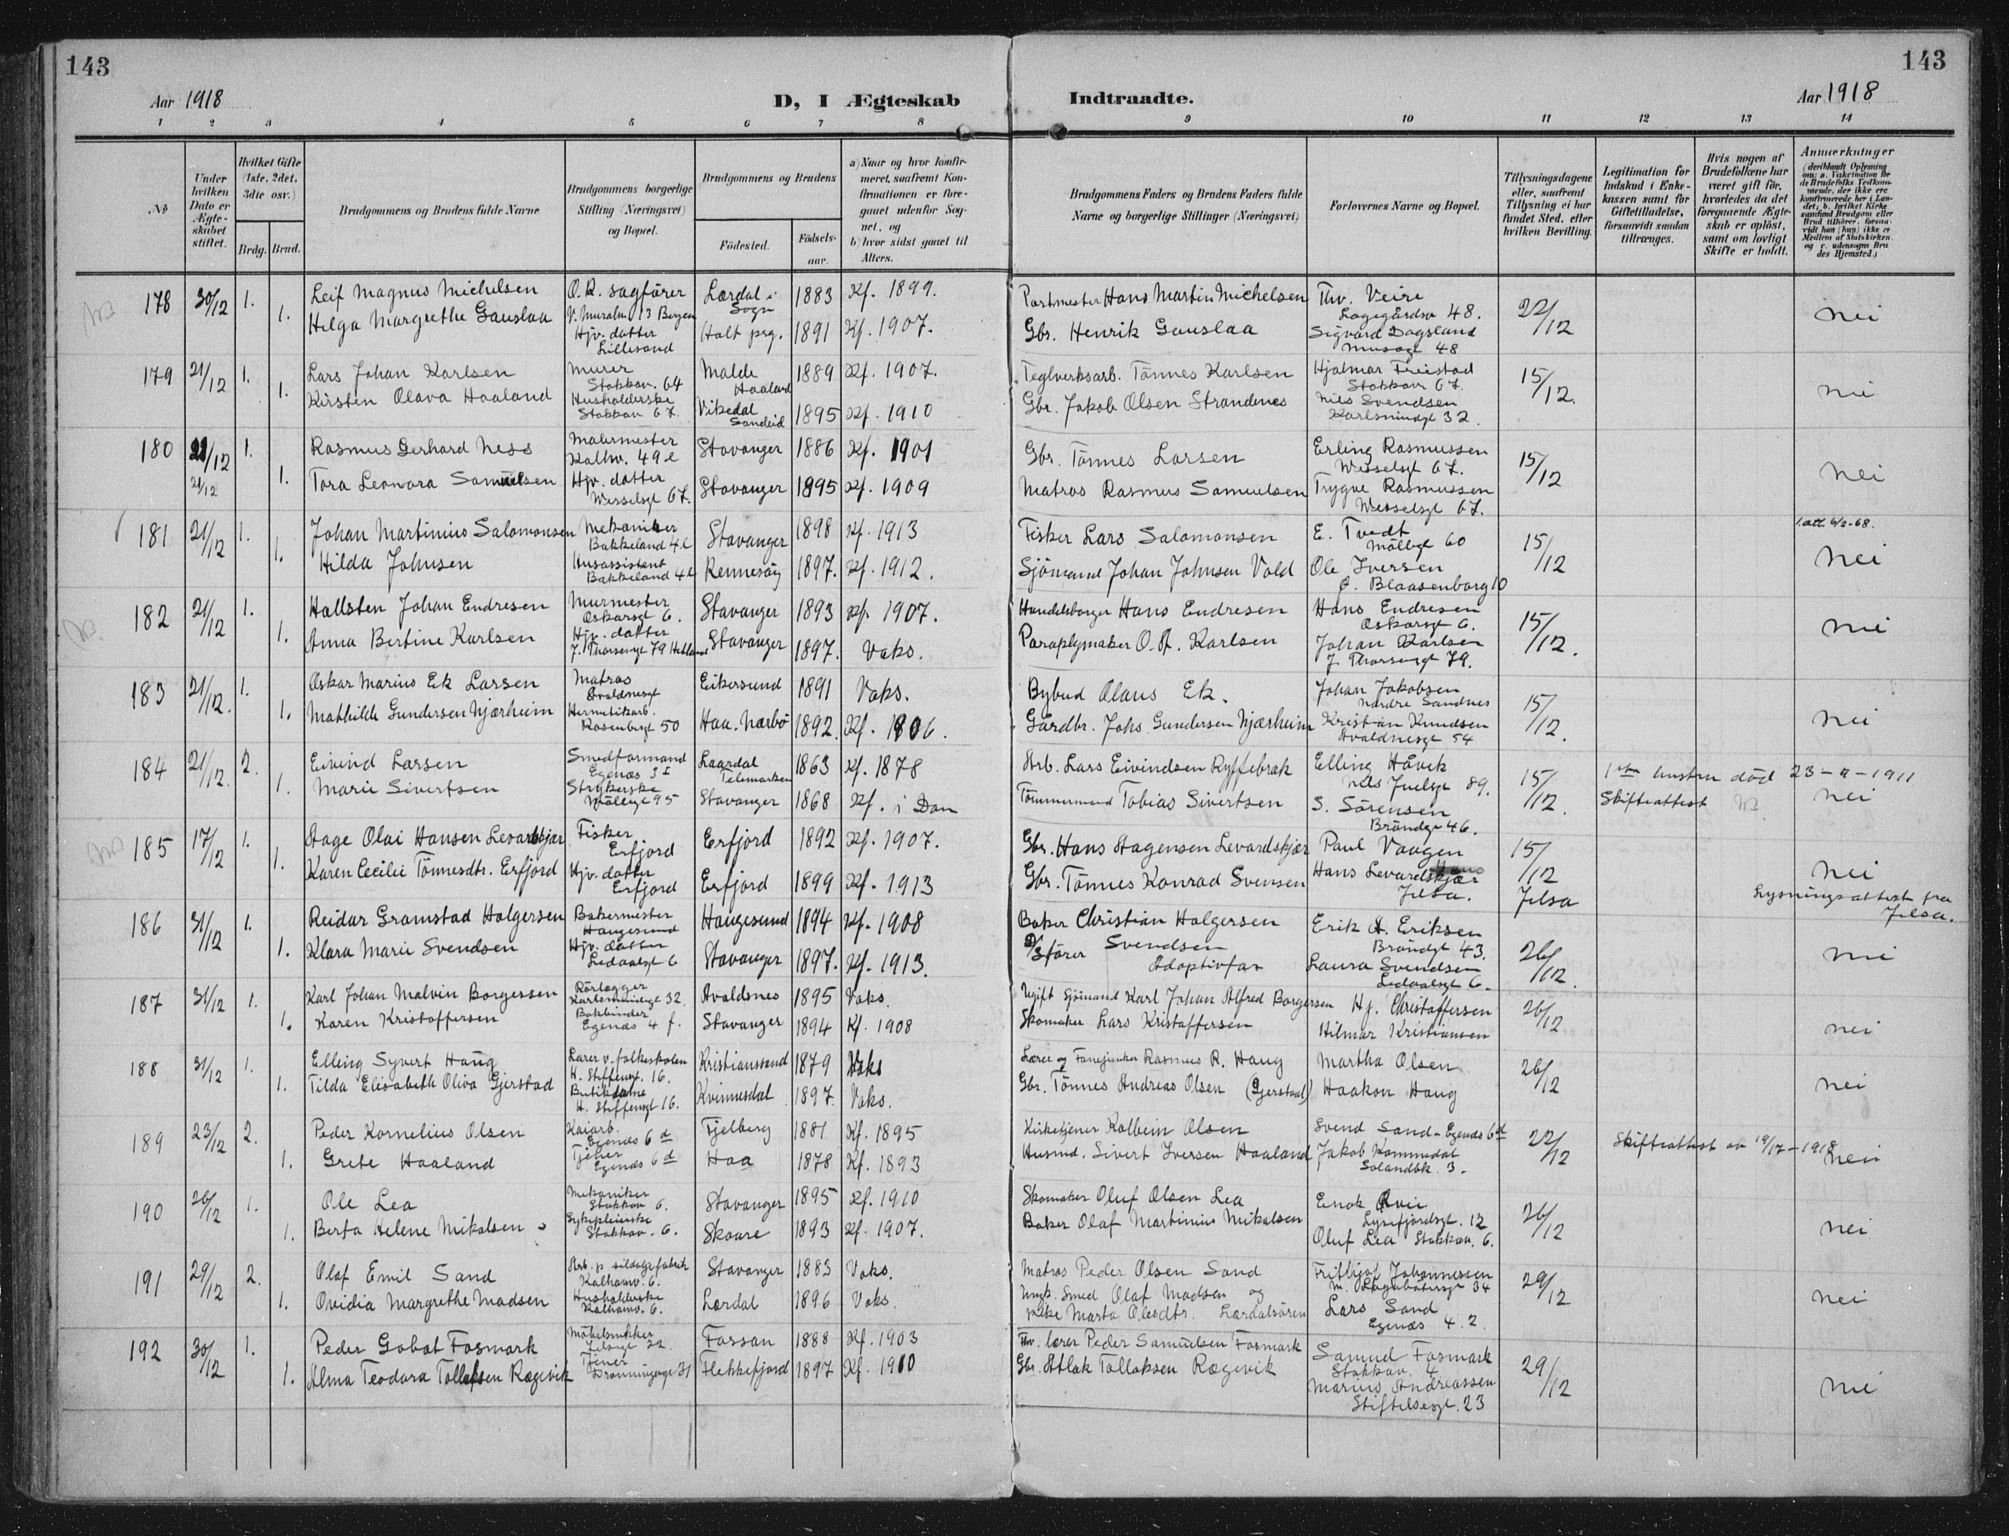 143
143
Aar 1918
D, I Ægteskab Indtraadte.
Aar 1918
1 2 3 4 5 6 7 8 9 10 11 12 13 14
No
Under hvilken Dato er Ægteskabet stiftet.
Hvilket Gifte (1ste, 2det, 3die osv.)
Brdg. Brud.
Brudgommens og Brudens fulde Navne
Brudgommens borgerlige Stilling (Næringsvei) og Bopæl.
Brudgommens og Brudens
Fødested.
Fødselsaar.
a) Naar og hvor konfirmeret, saafremt Konfirmationen er foregaaet udenfor Sognet, og
b) hvor sidst gaaet til Alters.
Brudgommens Faders og Brudens Faders fulde Navne og borgerlige Stillinger (Næringsvei)
Forlovernes Navne og Bopæl.
Tillysningsdagene eller, saafremt Tillysning ei har fundet Sted, efter hvilken Bevilling.
Legitimation for Indskud i Enkekassen samt for Giftetilladelse, forsaavidt saadan tiltrænges.
Hvis nogen af Brudefolkene har været gift før, hvorledes da det foregaaende Ægteskab er opløst, samt om lovligt Skifte er holdt.
Anmærkninger (deriblandt Oplysning om: a. Vakcination for de Brudefolks Vedkommende, der ikke ere konfirmerede her i Landet; b. hvilket Kirkesamfund Brudgom eller Brud tilhører, forsaavidt han (hun) ikke er Medlem af Statskirken, og c. udensogns Brudes Hjemsted.)
178 30/12 1. Leif Magnus Michelsen O.R. sagfører Lærdal i Sogn 1883 Kf. 1899. Postmester Hans Martin Michelsen Thv. Veire Lagegårdsv 48. 22/12 nei
1. Helga Margrethe Gauslaa V. Muralm 13 Bergen Hjv. datter Lillesand Holt prg. 1891 Kf. 1907. Gbr. Henrik Gauslaa Sigvard Dagsland Musegt 48
179 21/12 1. Lars Johan Karlsen Murer Stokkav. 64 Malde Haaland 1889 Kf. 1907. Teglverksarb. Tønnes Karlsen Hjalmar Freistad Stokkav 67. 15/12. nei
1. Kirsten Olava Haaland Husholderske Stokkav 67. Vikedal Sandeid 1895 Kf. 1910 Gbr. Jakob Olsen Strandenes Nils Svendsen Karlsmindgt 32.
180 21/12 1. Rasmus Gerhard Ness Malermester Kalhv. 49 e Stavanger 1886 Kf. 1901 Gbr. Tønnes Larsen Erling Rasmussen Wesselsgt 67. 15/12 nei
21/12 1. Tora Leonora Samuelsen Hjv. datter Wesselsgt 67. Stavanger 1895 Kf. 1909 Matros Rasmus Samuelsen Trygve Rasmussen Wesselsgt 67.
181 21/12 1. Johan Martinius Salomonsen Mekaniker Bakkeland 4 e Stavanger 1898 Kf. 1913 Fisker Lars Salomonsen E. Tvedt Møllegt 60 15/12 1.att. 6/2-68. nei
1. Hilda Johnsen Husassistent Bakkeland 4 e Rennesøy 1897. Kf. 1912. Sjømand Johan Johnsen Vold Ole Iversen Ø. Blaasenborg 10
182 21/12 1. Hallsten Johan Endresen Murmester Oskarsgt 6. Stavanger 1893 Kf. 1907. Handelsborger Hans Endresen Hans Endresen Oskarsgt 6. 15/12. nei
1. Anna Bertine Karlsen Hjv. datter J. Thorsensgt 79 Hetland Stavanger 1897. Vaks. Paraplymaker O. A. Karlsen Johan Karlsen J. Thorsensgt 79.
183 21/12. 1. Oskar Marius Ek Larsen Matros Avaldnesgt Eikersund 1891 Vaks. Bybud Olaus Ek. Johan Jakobsen Nordre Sandnes 15/12. nei
1. Mathilde Gundersen Njærheim Hermetikarb. Rosenbergt 50 Haa. Nærbö 1892. Kf. 1906. Gårdbr. Johs Gundersen Njærheim Kristian Knudsen Avaldnesgt 54
184 21/12. 2. Eivind Larsen Smedformand Egenæs 3 I Laardal Telemarken 1863 Kf. 1878 Arb. Lars Eivindsen Ryffebrak Elling Håvik Nils Juelsgt 89. 15/12. 1ste hustru død 23-9-1911 nei
1. Marie Sivertsen Strykerske Møllegt 95 Stavanger 1868 Kf. i Dan Tømmermand Tobias Sivertsen S. Sørensen Brøndgt 46. Skifteattest
185 17/12 1. Aage Olai Hansen Levardskjær Fisker Erfjord Erfjord 1892 Kf. 1907. Gbr. Hans Aagensen Levardskjær Paul Vaagen 15/12 Jelsa nei
1. Karen Cecilie Tønnesdtr. Erfjord Hjv. datter Erfjord Erfjord 1899 Kf. 1913 Gbr. Tønnes Konrad Svensen Hans Levardskjær Jelsa. Lysningsattest fra Jelsa.
186 31/12 1. Reidar Gramstad Holgersen Bakermester Haugesund Haugesund 1894 Kf. 1908 Baker Christian Holgersen Erik A. Eriksen Brøndgt 43. 26/12. nei
1. Klara Marie Svendsen Hjv. datter Ledaalsgt 6 Stavanger 1897. Kf. 1913. D/Sfører Svendsen Adoptivfar Laura Svendsen Ledaalsgt 6.
187 31/12 1. Karl Johan Malvin Borgersen Rørlægger Karlsmindegt 32. Avaldsnes 1895 Vaks. Ugift sjømand Karl Johan Alfred Borgersen Hj. Christoffersen 26/12 nei
1. Karen Kristoffersen Bokbinder Egenæs 4 f. Stavanger 1894 Kf. 1908 Skomaker Lars Kristoffersen Hilmar Kristiansen
188 31/12 1. Elling Syvert Haug Lærer v. folkeskolen H. Steffensgt. 16. Kristianssand 1879 Vaks Lærer og Fanejunker Rasmus R. Haug Martha Olsen 26/12 nei
1. Tilda Elisabeth Oliva Gjerstad Butikdame H. Steffensgt 16. Kvinnesdal 1897. Vaks. Gbr. Tønnes Andreas Olsen (Gjerstad) Haakon Haug
189 23/12 2. Peder Kornelius Olsen Kaiarb. Egenæs 6 d Fjelberg 1881 Kf. 1895 Kirketjener Kolbein Olsen Svend Sand - Egenæs 6 d 22/12 Skifteattest av 19/12-1918 nei
1. Grete Haaland Tjener Egenæs 6 d Haa 1878 Kf. 1893 Husmd. Sivert Iversen Haaland Jakob Kommedal Solandbk. 3.
190 26/12 1. Ole Lea Mekaniker Stokkav 6. Stavanger 1895 Kf. 1910 Skomaker Oluf Olsen Lea Enok Lysefjordsgt. 12 26/12 nei
1. Berta Helene Mikalsen Sykepleierske Stokkav. 6. Skaare 1893 Kf. 1907. Baker Olaf Martinius Mikalsen Oluf Lea Stokkav. 6.
191 29/12 2. Olaf Emil Sand Arb. p sildoljefabrik Kalhamv. 6. Stavanger 1883 Vaks. Matros Peder Olsen Sand Frithjof Johannessen 34 29/12 nei
1. Ovidia Margrethe Madsen Husholderske Kalhamv. 6. Lærdal 1896 Vaks. Ungk. Smed Olaf Madsen og pike Marta Olesdtr. Lærdalsøren Lars Sand Egenæs 4. 2.
192 30/12 1. Peder Gobat Fosmark Møbelsnikker 22. Fossan 1888 Kf. 1903 Fhv. lærer Peder Samuelsen Fosmark Samuel Fosmark Stokkav. 4 29/12 nei
1. Alma Teodora Tollaksen Rægevik Tjener Dronningensgt 31 Flekkefjord 1897 Kf. 1910 Gbr. Atlak Tollaksen Rægevik Marius Andreassen Stiftelsesgt. 23